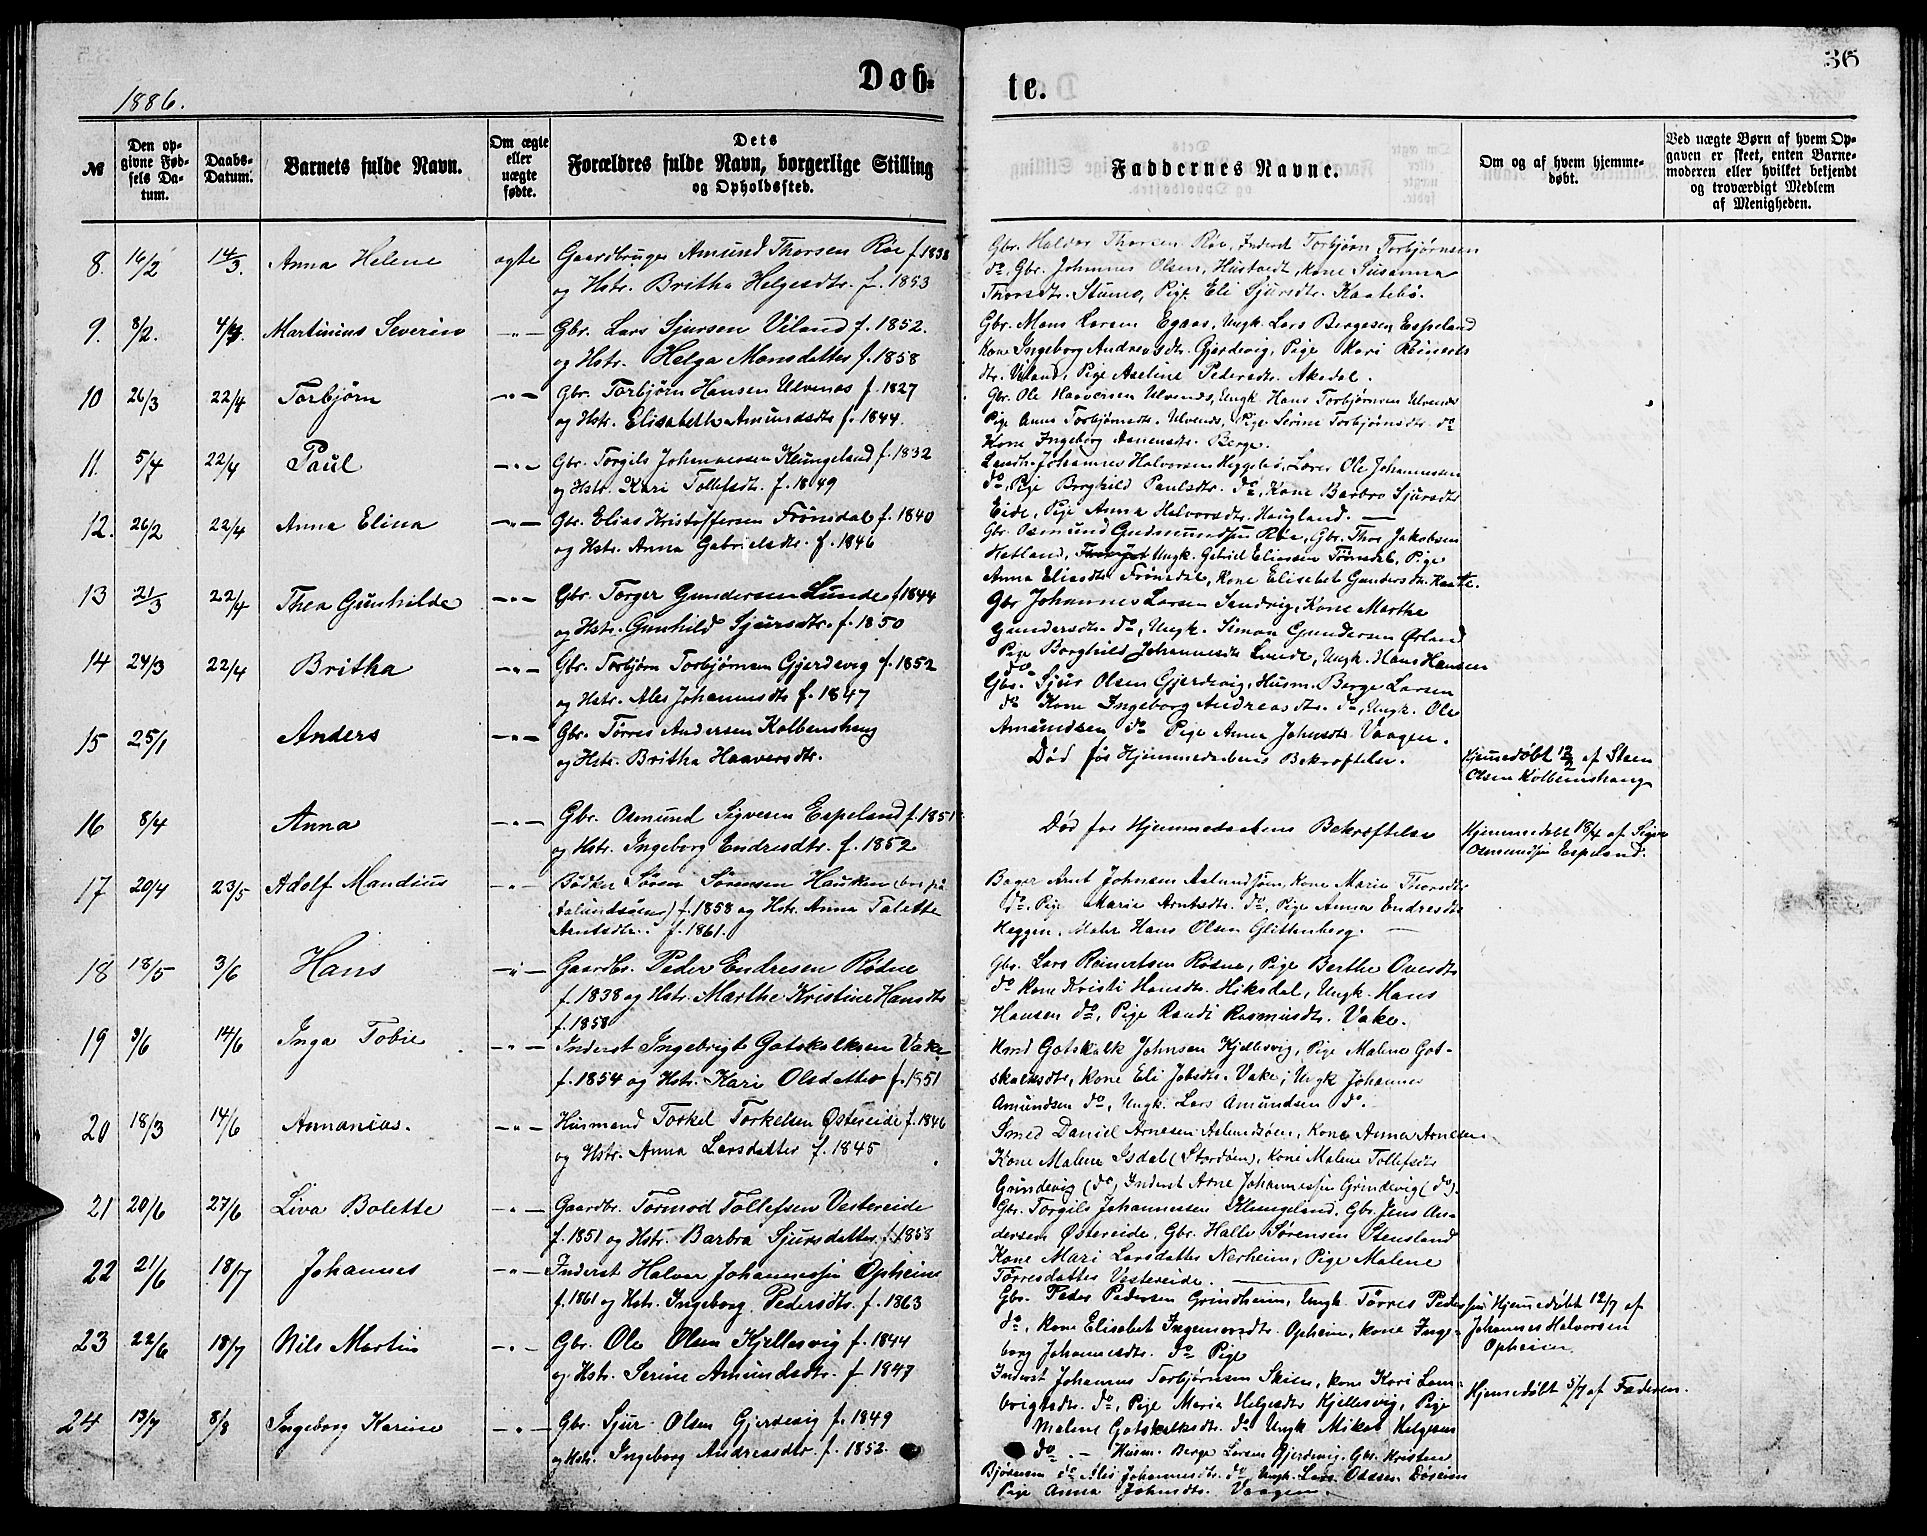 36
Døb-
te.
1886.
№
Den op-
givne Fød-
sels Da-
tum.
Daabs-
Datum.
Barnets fulde Navn.
Om ægte
eller
uægte
fødte.
Dets
Forældres fulde Navn, borgerlige Stilling
og Opholdssted.
Faddernes Navne.
Om og af hvem hjemme-
døbt.
Ved uægte Børn af hvem Op-
gaven er skeet, enten Barne-
moderen eller hvilket bekjendt
og troværdigt Medlem
af Menigheden.
8. 16/2 14/3. Anna Helene ægte Gaardbruger Amund Thorsen Røe f. 1838
og Hstr. Britha Helgesdtr. f. 1853
Gbr. Halvor Thorsen Røe, Inderst Torbjørn Torbjørnsen
do. Gbr. Johannes Olsen, Hustoedt, Kone Susanna
Thorsdtr. Stumo, Pige Eli Sjursdtr. Kaatebø.
9. 8/2. 4/4. Martinius Severin -"- Gbr. Lars Sjursen Viland f. 1852.
og Hstr. Helga Monsdatter f. 1858
Gbr. Mons Larsen Egaas, Ungk. Lars Bergesen Espeland
Kone Ingeborg Andreasdtr. Gjerdevig, Pige Kari Reinerts
dtr. Viland, Pige Aseline Pedersdtr. Akedal.
10 26/3 22/4 Torbjørn -"- Gbr. Torbjørn Hansen Ulvenæs f. 1827
og Hstr. Elisabeth Amundsdtr f. 1844.
Gbr. Ole Haaversen Ulvenæs, Ungk. Hans Torbjørnsen Ulvenæs
Pige Anna Torbjørnsdtr. Ulvenæs, Pige Serine Torbjørnsdtr. do
Kone Ingeborg Berge.
11. 5/4 22/4 Paul -"- Gbr. Torgils Johannessen Klungeland f. 1832
og Hstr. Kari Tollefsdtr. f. 1849
Johannes Halvorsen Heggebø, Lærer Ole Johannesen
do, Pige Borghild Paulsdtr. do, Kone Barbro Sjursdtr
Eide, Pige Anna Halvorsdtr. Haugland. —
12. 26/2 22/4 Anna Elina -"- Gbr. Elias Kristoffersen Frönsdal f. 1840
og Hstr. Anna Gabrielsdtr. f. 1846
Gbr. Osmund Gudmundsen Røe, Gbr. Thor Jakobsen
Hetland, Ungk. Gabriel Eliassen Frönsdal, Pige
Anna Eliasdtr Frönsdal, Kone Elisabet Gundersdtr. Kaate.
13 21/3 22/4 Thea Gunhilde -"- Gbr. Torger Gundersen Lunde f 1844
og Hstr. Gunhild Sjursdtr. f. 1850
Gbr Johannes Larsen Sandvig, Kone Marthe
Gundersdtr. do, Ungk. Simon Gundersen Ørland
Pige Borghild Johannesdtr Lunde, Ungk. Hans Hansen
do
14 24/3 22/4 Britha -"- Gbr. Torbjørn Torbjørnsen Gjerdevig f. 1852
og Hstr. Ales Johannesdtr f. 1847
Gbr. Sjur Olsen Gjerdevig, Husm. Berge Larsen
do Kone Ingeborg Andreasdtr. do, Ungk. Ole
Amundsen do Pige Anna Johnsdtr. Vaagen.
15 25/1 Anders -"- Gbr. Tørres Andersen Kolbenshaug
og Hstr. Britha Haaversdtr.
Død før Hjemmedaabens Bekræftelse.
Hjemmedøbt 12/2 af Steen
Olsen Kolbeinshaug
16 8/4 Anna -"- Gbr. Osmund Sigvesen Espeland f. 1851
og Hstr. Ingeborg Endresdtr. f. 1852
Død før Hjemmedaabens Bekræftelse
Hjemmedøbt 18/4 af Sigve
Osmundsen Espeland.
17 20/4 23/5 Adolf Mandius -"- Bødker Søren Sørensen Hauken (bor på
Aalundsøen) f. 1858 og Hstr. Anna Talette
Arntsdtr. f. 1861.
Bager Arnt Johnsen Aslundsøen, Kone Marie Thorsdtr
do. Pige Maria Arntsdtr. do, Pige Anna Endresdtr
Heggen, Hans Olsen Glittenberg. —
18 18/5 3/6 Hans -"- Gaardbr. Peder Endresen Rødne
f. 1838 og Hstr. Marthe Kristine Hansdtr
f. 1858
Gbr. Lars Reinertsen Rødne, Pige Berthe Ovesdtr
do Kone Kristi Hansdtr. Hiksdal, Ungk. Hans
Hansen do, Pige Randi Rasmusdtr. Vake.
19 3/6 14/6 Inga Tobie -"- Inderst Ingebrigt Gotskalksen Vake
f. 1854 og Hstr. Kari Olsdatter f. 1851
Gotskalk Johnsen Kjellesvig, Pige Malene Got-
skalksdtr, Kone Eli Jobsdtr. Vake, Ungk Johannes
Amundsen do, Ungk. Lars Amundsen do.
20 18/3 14/6 Annanias. -"- Husmand Torkel Torkelsen Østereide f. 1846
og Hstr. Anna Larsdatter f. 1845
Smed Daniel Arnesen Aslundsøen, Kone Anna Arnesen
Kone Malene Isdal (Stordøen), Kone Malene Tollefsdtr
Grindevig (do), Inderst Arne Johannessen Grindevig (do).
21 20/6 27/6 Liva Bolette -"- Gaardbr. Tormod Tollefsen Vestereide
f. 1851 og Hstr. Barbra Sjursdatter f. 1858
Gbr. Torgils Johannessen Klungeland, Gbr. Jens An-
dersen Østereide, Gbr. Halle Sørensen Stensland
Kone Mari Larsdatter Nerheim, Pige Malene
Tørresdatter Vestereide. —
22 21/6 18/7 Johannes -"- Inderst Halvor Johannessen Opheim
f. 1861 og Hstr. Ingeborg Pedersdtr. f. 1863
Gbr. Peder Pedersen Grindheim, Ungk. Tørres Peders
sen
do, Kone Elisabet Ingemorsdtr. Opheim, Kone Inge-
borg Johannesdtr. do Pige
Hjemmedøbt 12/7 af
Johannes Halvorsen
Opheim
23 22/6 18/7 Nils Martin -"- Gbr. Ole Olsen Kjellesvig f. 1844
og Hstr. Serine Amundsdtr. f 1847
Inderst Johannes Torbjørnsen Skien, Kone Kari Lam-
brigtsdtr. do, Pige Maria Helgesdtr Kjellesvig, Pige
Malene Gotskalksdtr. do Ungk Mikal Helgesen
do. —
Hjemmedøbt 5/7 af Faderen.
24 13/7 8/8 Ingeborg Karine -"- Gbr. Sjur Olsen Gjerdevig f. 1849
og Hstr. Ingeborg Andreasdtr. f. 1852.
Husm. Berge Larsen Gjerdevig, Gbr. Kristen
Bjørnsen do Ales Johannesdtr. do, Ungk. Lars Ossen
Pige Anna Johnsdtr. Vaagen.